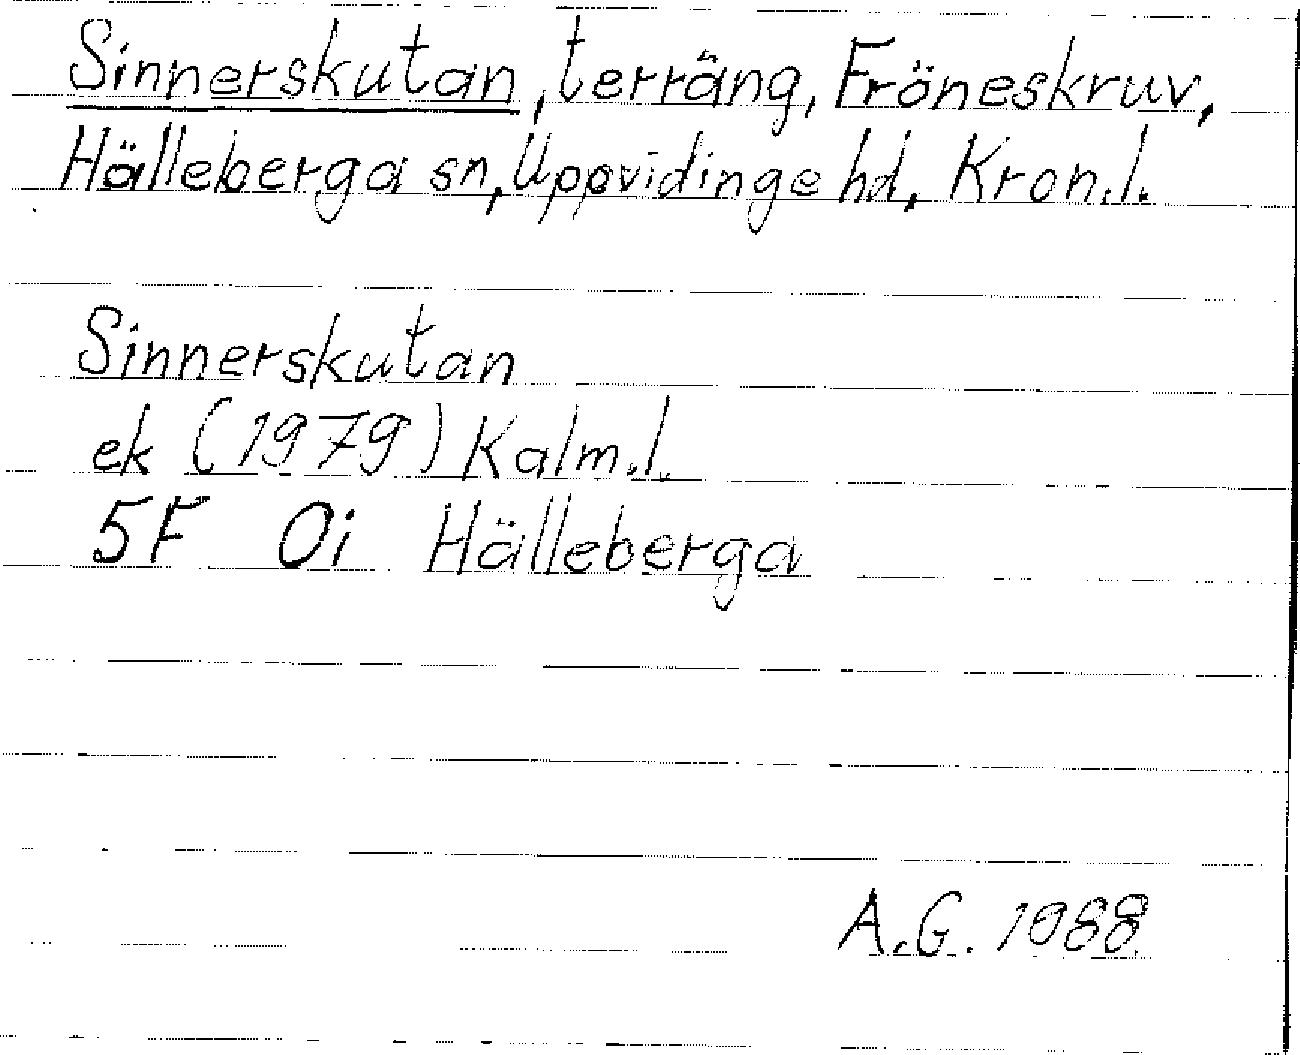 Sinnerskutan, terräng, Fröneskruv,
Hälleberga sn, Uppvidinge hd, Kron.l.
Sinnerskutan
ek (1979) Kalm.l.
5F 0i Hälleberga
A.G. 1988